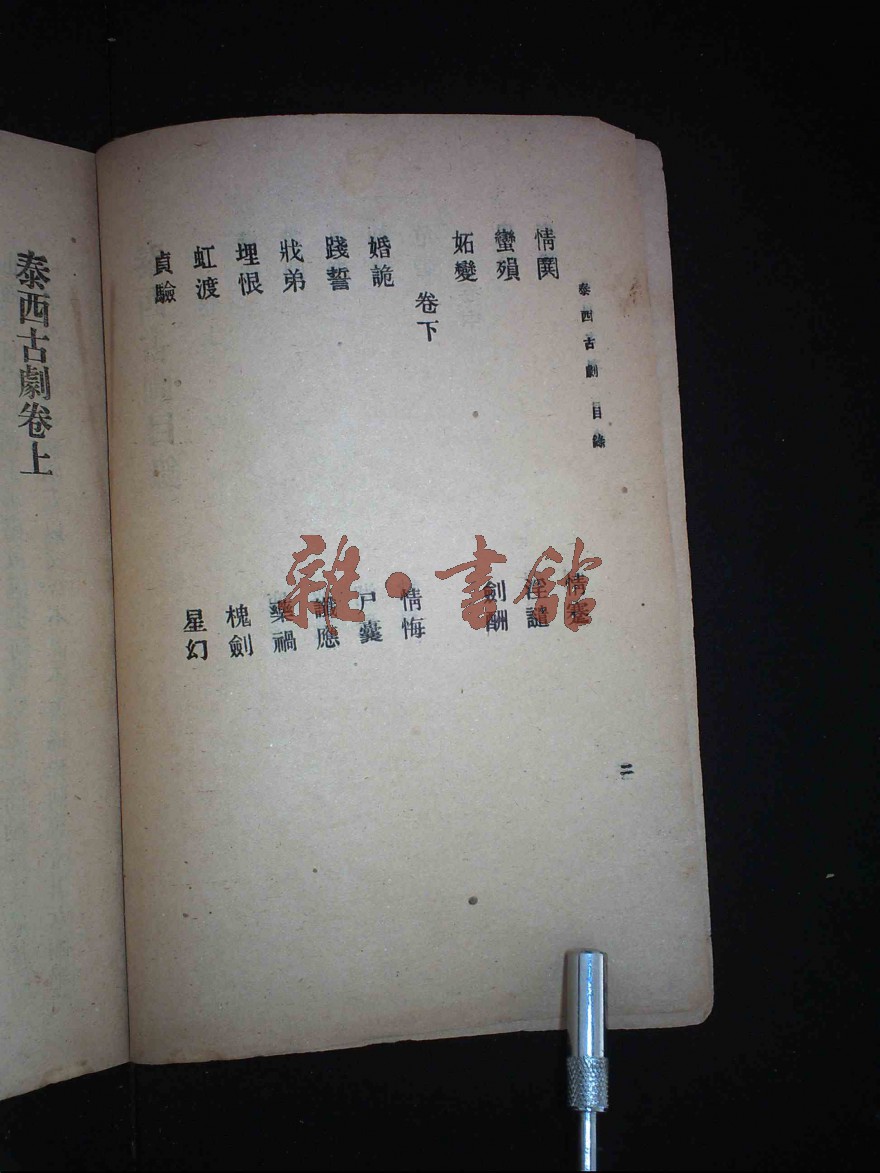 泰西古劇 目錄 二
情鬩 情蹇
蠻殞 淫譴
妬變 劍酬
卷下
婚詭 情悔
踐誓 尸囊
戕弟 讖應
埋恨 藥禍
虹渡 槐劍
貞驗 星幻
泰西古劇卷上
雜·書館